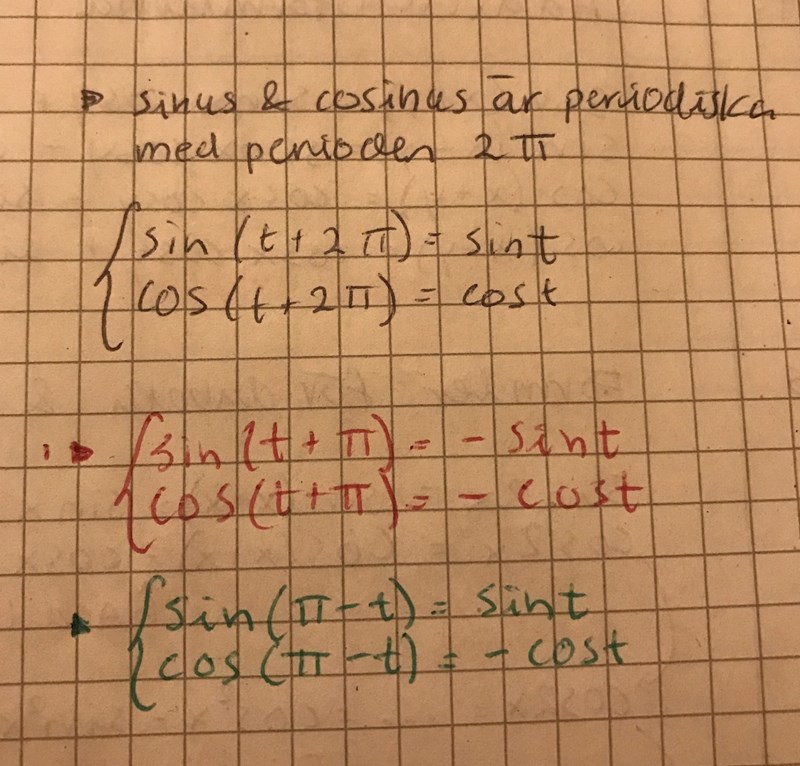 sinus & cosinus är periodiska
med perioden 2π
sin (t + 2π) = sin t
cos (t + 2π) = cos t
sin (t + π) = - sin t
cos (t + π) = - cos t
sin (π - t) = sin t
cos (π - t) = - cos t